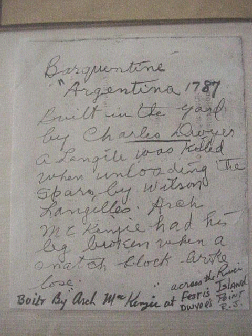 Barquentine
"Argentina 1787
built in the yard
by Charles Dwyer
a Langille was killed
when unloading the
spars by Wilson
Langilles. Arch
McKenzie had his
leg broken when a
snatch block broke
lose.
across the River
Built By Arch McKenzie at Ferris Island
Dwyers Point